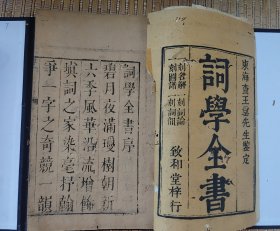 東海查王望先生鑒定
詞學全書
致和堂梓行
詞學全書序
碧月夜滿瓊樹朝新
六季風華漂流增飾
填詞之家染毫抒翰
爭一字之奇競一韻